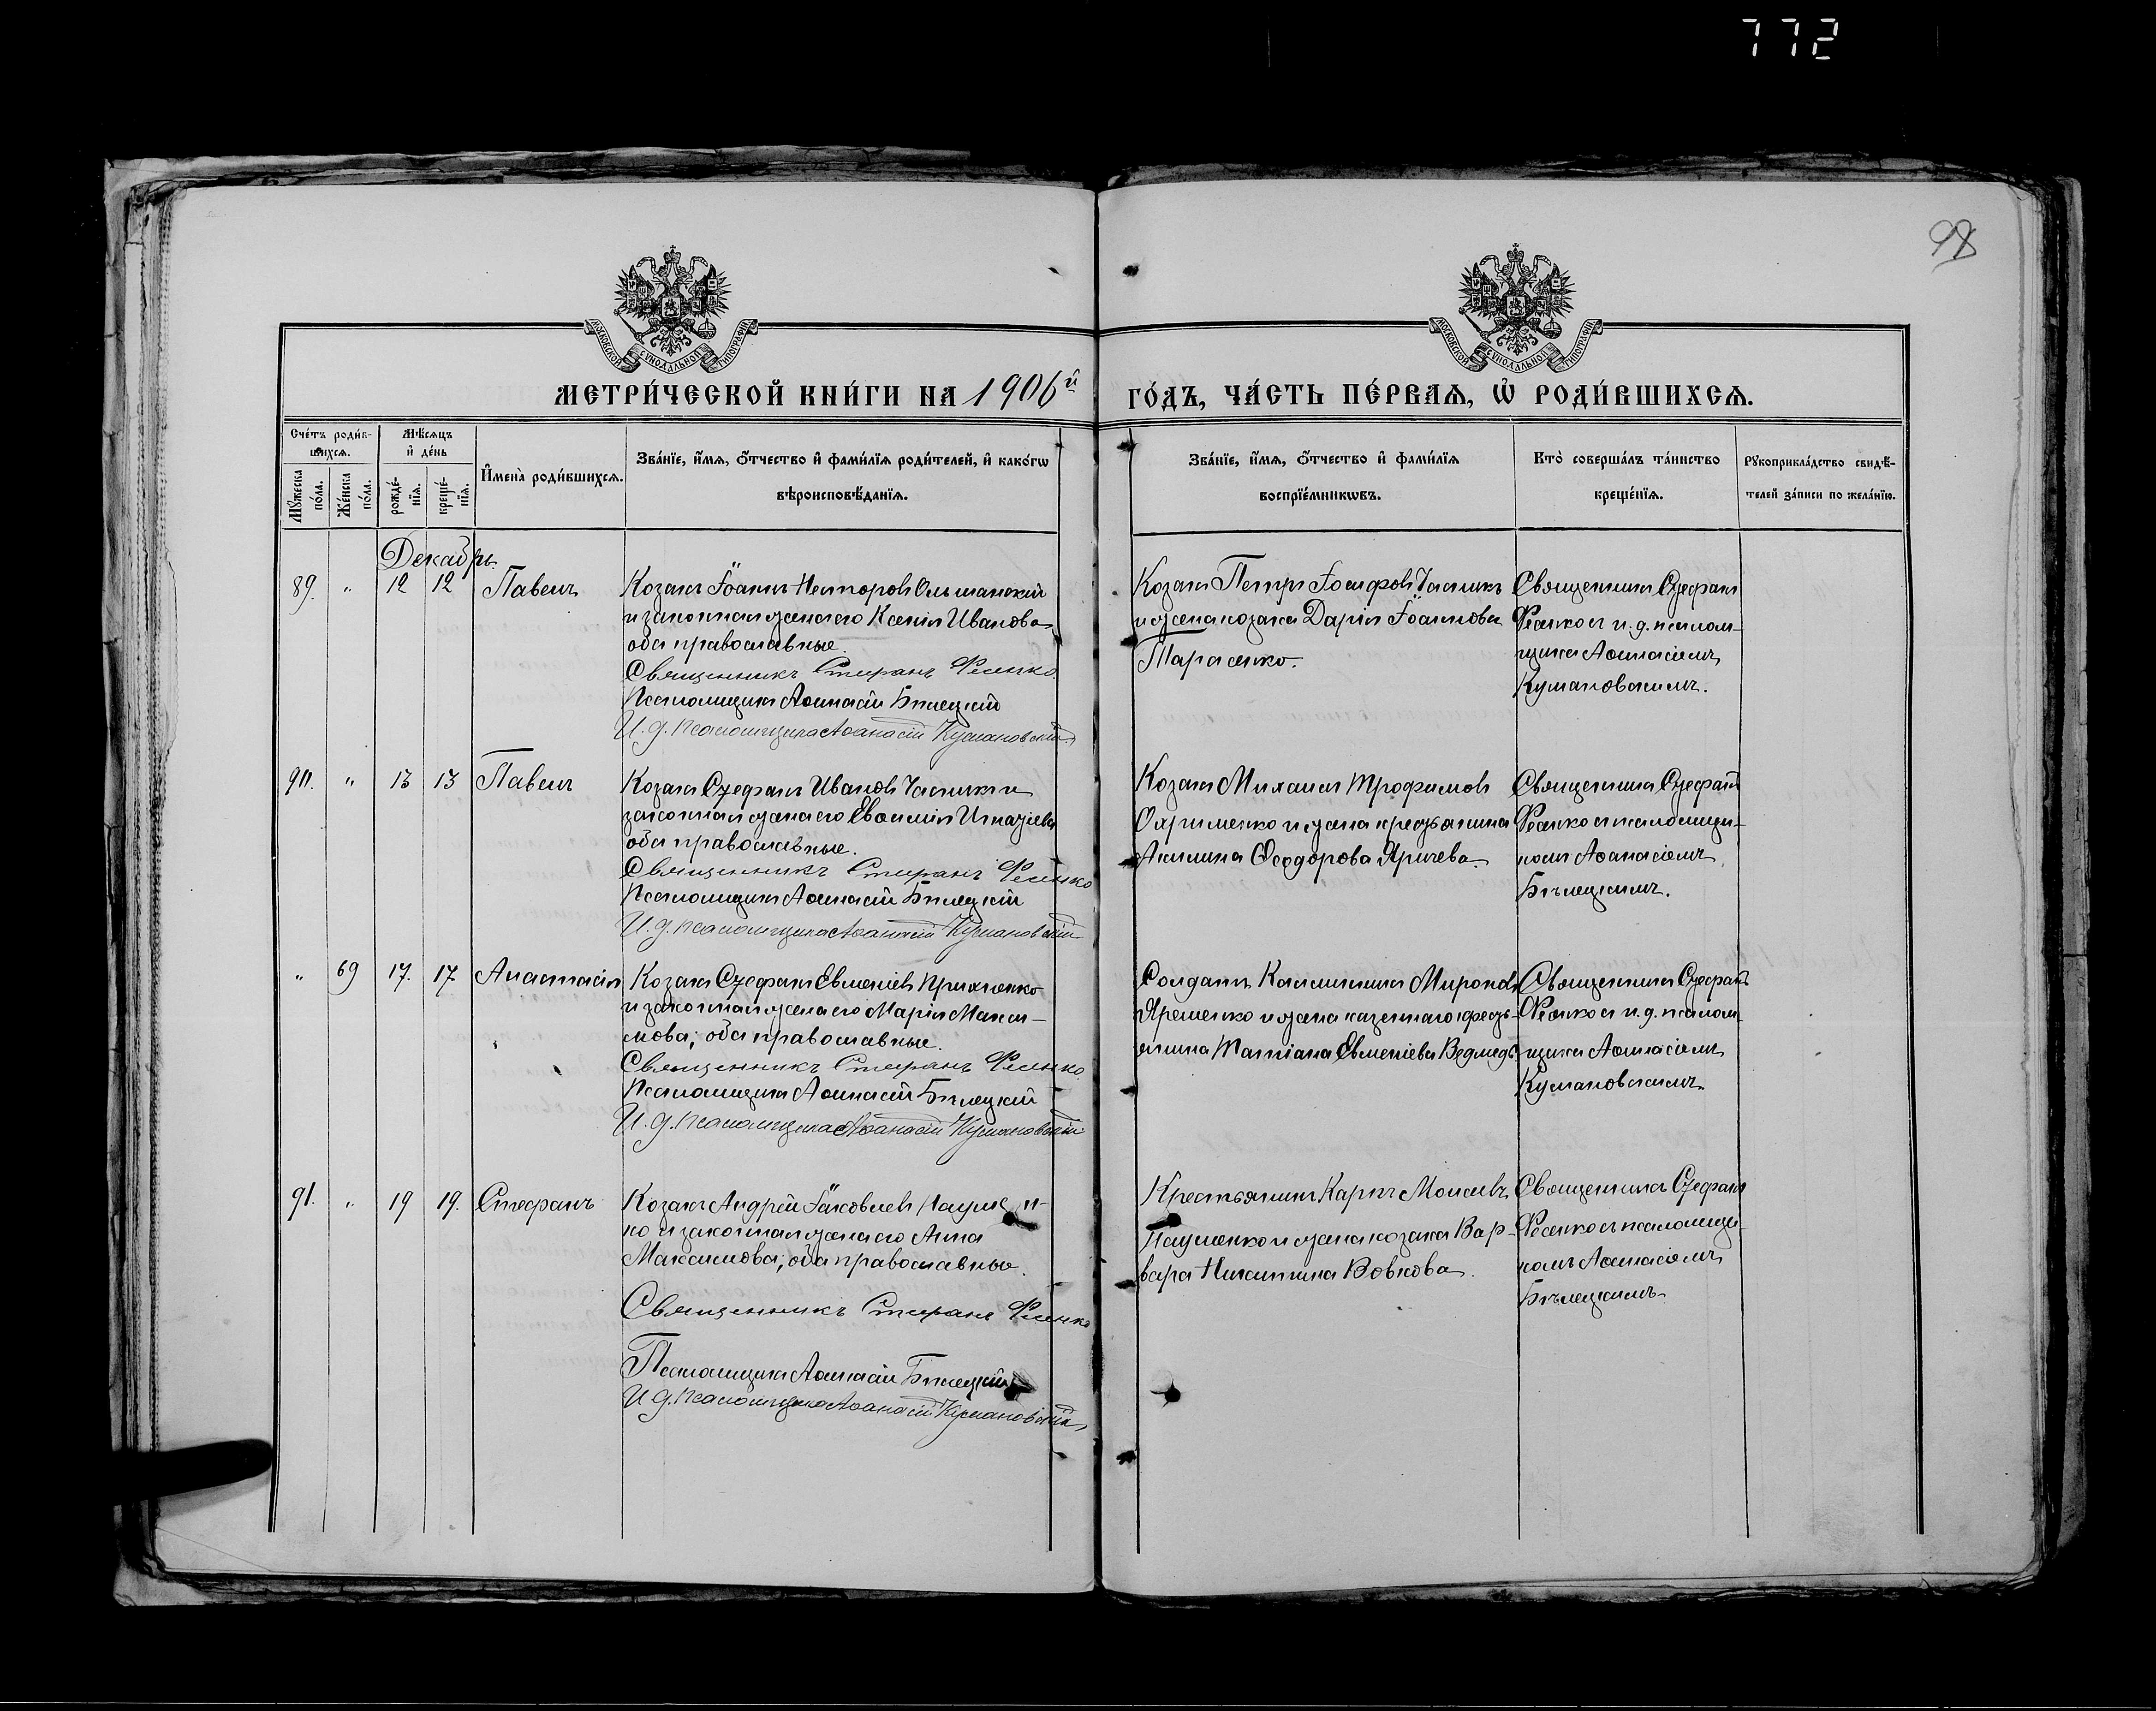 772
98
МОСКОВСКОЙ СУНОДАЛЬНОЙ ТИПОГРАФІИ
МОСКОВСКОЙ СУНОДАЛЬНОЙ ТИПОГРАФІИ
МЕТРИ́ЧЕСКОЙ КНИ́ГИ НА 1906й ГО́ДЪ, ЧА́СТЬ ПЕ́РВАѦ, Ѡ҆ РОДИ́ВШИХСѦ.
Сче́тъ роди́в-
шихсѧ.
Мѣ́сѧцъ
и҆ де́нь
Мꙋ́жеска по́ла.
Же́нска по́ла.
рожде́-нїѧ.
креще́-нїѧ.
И҆мена̀ роди́вшихсѧ.
Зва́нїе, и҆́мѧ, о҆́тчество и҆ фами́лїѧ роди́телей, и҆ како́гѡ
вѣроисповѣ́данїѧ.
Зва́нїе, и҆́мѧ, о҆́тчество и҆ фами́лїѧ
воспрїе́мникѡвъ.
Кто̀ соверша́лъ та́инство
креще́нїѧ.
Рꙋкоприкла́дство свидѣ́-
телей за́писи по жела́нїю.
Декабрь.
89. " 12 12 Павелъ
Козакъ Іоаннъ Несторовъ Ольшанскій
и законная жена его Ксенія Иванова
оба православные.
Священникъ Стефанъ Фесенко.
Псаломщикъ Аѳанасій Бѣлецкій
И. д. псаломщика Аѳанасій Кумановскій
Козакъ Петръ Іосифовъ Часникъ
и жена козака Дарія Іоаннова
Тарасенко.
Священникъ Стефанъ
Фесенко съ и. д. псалом-
щика Аѳанасіемъ
Кумановскимъ.
90. " 13 13 Павелъ
Козакъ Стефанъ Ивановъ Часникъ и
законная жена его Евѳимія Игнатіева
оба православные.
Священникъ Стефанъ Фесенко
Псаломщикъ Аѳанасій Бѣлецкій
И. д. псаломщика Аѳанасій Кумановскій
Козакъ Михаилъ Трофимовъ
Охрименко и жена крестьянина
Акилина Ѳеодорова Яричева
Священникъ Стефанъ
Фесенко съ псаломщи-
комъ Аѳанасіемъ
Бѣлецкимъ.
" 69 17. 17 Анастасія
Козакъ Стефанъ Евменіевъ Прихненко
и законная жена его Марія Макси-
мова; оба православные.
Священникъ Стефанъ Фесенко.
Псаломщикъ Аѳанасій Бѣлецкій
И. д. псаломщика Аѳанасій Кумановскій
Солдатъ Каллиникъ Мироновъ
Яременко и жена казеннаго кресть-
янина Татіана Евменіева Ведмедь
Священникъ Стефанъ
Фесенко съ и. д. псалом-
щика Аѳанасіемъ
Кумановскимъ
91. " 19 19. Стефанъ
Козакъ Андрей Іаковлевъ Наумен-
ко и законная жена его Анна
Максимова; оба православные.
Священникъ Стефанъ Фесенко
Псаломщикъ Аѳанасій Бѣлецкій
И. д. псаломщика Аѳанасій Кумановскій
Крестьянинъ Карпъ Моисеевъ
Науменко и жена козака Вар-
вара Никитина Вовкова.
Священникъ Стефанъ
Фесенко съ псаломщи-
комъ Аѳанасіемъ
Бѣлецкимъ